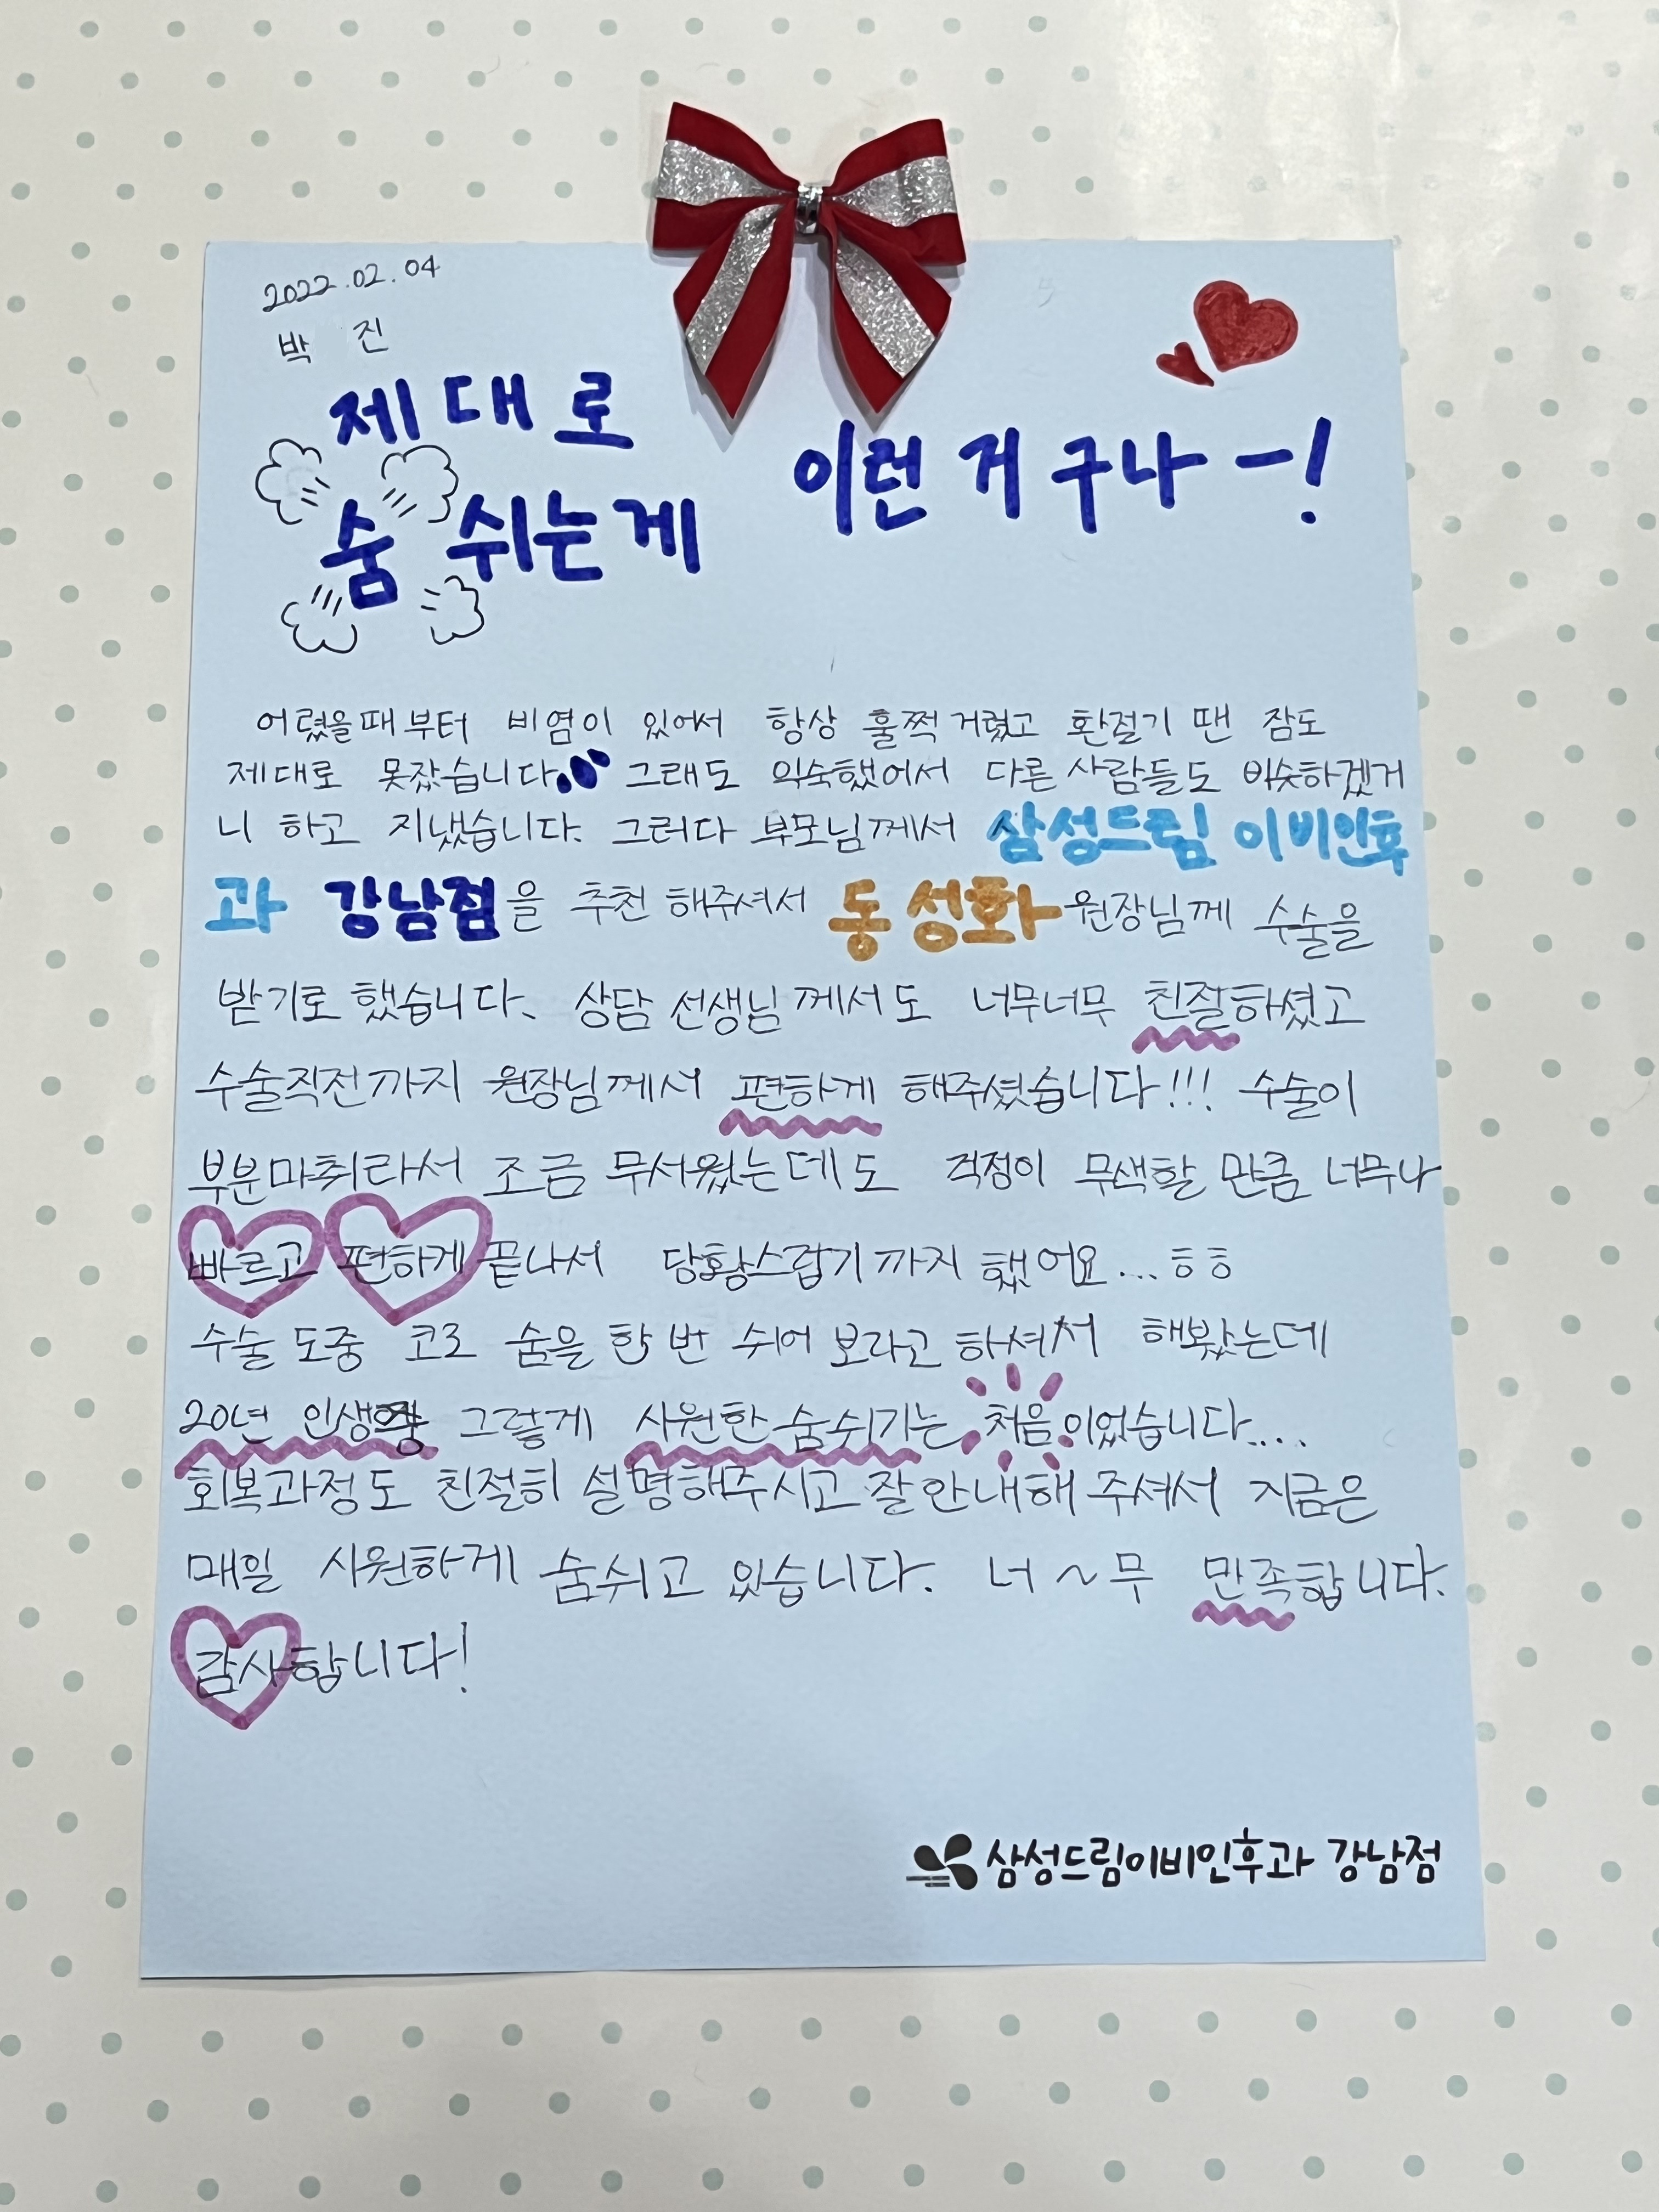 2022.02.04
박 진
제대로
숨 쉬는게 이런 거구나-!
어렸을때부터 비염이 있어서 항상 훌쩍거렸고 환절기 땐 잠도
제대로 못잤습니다. 그래도 익숙했어서 다른 사람들도 비슷하겠거
니 하고 지냈습니다. 그러다 부모님께서 삼성드림 이비인후
과 강남점을 추천 해주셔서 동성화 원장님께 수술을
받기로 했습니다. 상담 선생님께서도 너무너무 친절하셨고
수술직전까지 원장님께서 편하게 해주셨습니다!!! 수술이
부분마취라서 조금 무서웠는데도 걱정이 무색할 만큼 너무나
빠르고 편하게 끝나서 당황스럽기까지 했어요...ㅎㅎ
수술 도중 코로 숨을 한 번 쉬어 보라고 하셔서 해봤는데
20년 인생 그렇게 시원한 숨쉬기는 처음이었습니다....
회복과정도 친절히 설명해주시고 잘 안내해 주셔서 지금은
매일 시원하게 숨쉬고 있습니다. 너~무 만족합니다.
감사합니다!
삼성드림이비인후과 강남점